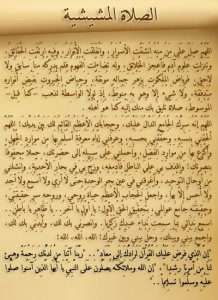 الصلاة المشيشية
اللهم صل على من منه انشقت الأسرار، وانفلقت الأنوار، وفيه ارتقت الحقائق،
وتنزلت علوم آدم فأعجز الخلائق، وله تضاءلت الفهوم فلم يدركه منا سابق ولا
لاحق، فرياض الملكوت بزهر جماله مونقة، وحياض الجبروت بفيض أنواره
متدفقة، ولا شيء إلا وهو به منوط، إذ لولا الواسطة لذهب -كما قيل-
الموسوط، صلاة تليق بك منك إليه كما هو أهله
اللهم إنه سرك الجامع الدال عليك، وحجابك الأعظم القائم لك بين يديك. اللهم
ألحقني بنسبه، وحققني بحسبه، وعرفني إياه معرفة أسلم بها من موارد الجهل،
وأكرع بها من موارد الفضل. واحملني على سبيله إلى حضرتك، حملا محفوفا
بنصرتك، واقذف بي على الباطل فأدمغه، وزج بي في بحار الأحدية، وانشلني
من أوحال التوحيد، وأغرقني في عين بحر الوحدة حتى لا أرى ولا أسمع ولا أجد
ولا أحس إلا بها، واجعل الحجاب الأعظم حياة روحي، وروحه سر حقيقتي،
وحقيقته جامع عوالمي، بتحقيق الحق الأول؛ يا أول يا آخر يا ظاهر يا باطن،
اسمع ندائي بما سمعت نداء عبدك زكريا، وانصرني بك لك، وأيدني بك لك،
واجمع بيني وبينك، وحل بيني وبين غيرك: الله، الله، الله!
"إن الذي فرض عليك القرآن لرادك إلى معاد".. "ربنا آتنا من لدنك رحمة وهيئ
لنا من أمرنا رشدا".. "إن الله وملائكته يصلون على النبي يا أيها الذين آمنوا صلوا
عليه وسلموا تسليما"..